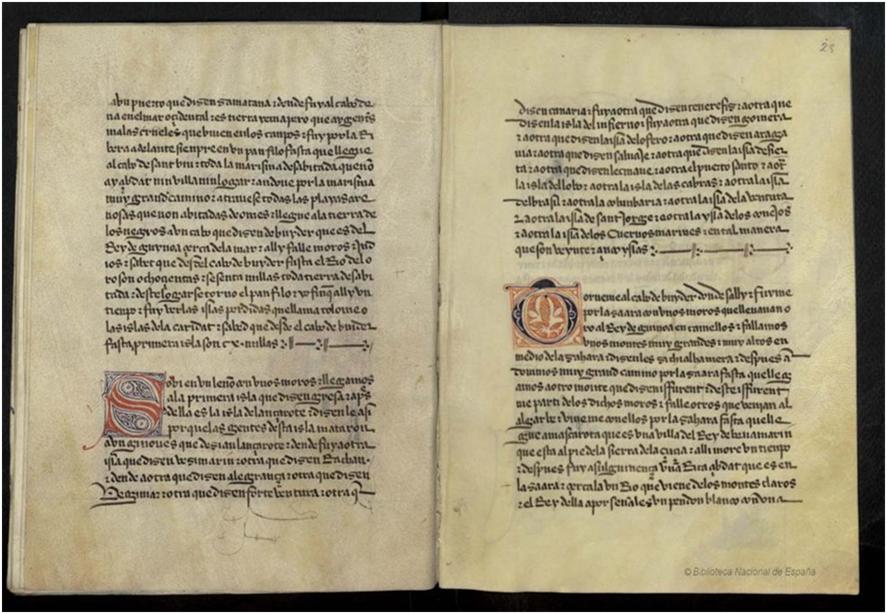 a un puerto que disen gamatana τ dende fuy al cabo de
na en el mar ocidental τ es tierra yerma pero que ay gentes
malas crueles que biuen en los canpos τ fuy por la Ri
bera adelante sienpre en vn panfilo fasta que llegue
al cabo de sant bin τ toda la marisma desabitada que no
ay abdat nin villa nin logar τ andoue por la marisma
muy grand camino τ atrauese todas las playas are
nosas que non abitadas de omes τ llegue a la tierra de
los negros a vn cabo que disen de buyder que es del
Rey de guynoa cerca de la mar τ ally falle moros τ judi
os τ sabet que desdel cabo de buyder fasta el Rio del o
ro son ochocientas τ sesenta millas toda tierra desabi
tada τ deste logar se torno el panfilo τ yo finque ally vn
tienpo τ fuy ver las islas perdidas que llama tolomeo
las islas de la caridat τ sabed que desde el cabo de buider
fasta primera isla son c x millas
Sobi en vn leño con vnos moros τ llegamos
a la primera isla que disen gresa τ apres
della es la isla de lançarote τ disen le asi
por que las gentes desta isla mataron
a vn ginoues que desian lançarote τ dende fuy a otra
isla que disen vesimarin τ otra que disen Rachan
τ dende a otra que disen alegrança τ otra que disen
Vegimar τ otra que disen forte ventura τ otra q̃
23
disen canaria τ fuy a otra que disen tenerefiz τ a otra que
disen la isla del infierno τ fuy a otra que disen gomera
τ a otra que disen la isla de lo fero τ a otra que disen araga
uia τ a otra que disen saluaje τ a otra que disen la isla desier
ta τ a otra que disen lecmane τ a otra el puerto santo τ a otra
la isla del lobo τ a otra la isla de las cabras τ a otra la isla
del brasil τ a otra la columbaria τ a otra la isla de la ventura
τ a otra la isla de sant Jorge τ a otra la ysla de los conejos
τ a otra la isla de los Cueruos marines τ en tal manera
que son veynte τ cinco yslas
Torneme al cabo de buyder donde sally τ fuy me
por la saara con vnos moros que lleuauan o
ro al Rey de guinoa en camellos τ fallamos
vnos montes muy grandes τ muy altos en
medio de la sahara τ disenles gidialhamera τ despues a
todimos muy grand camino por la saara fasta que lleg
amos a otro monte que disen iffurent τ deste iffurent
me parti de los dichos moros τ falle otros que venian al
algarbe τ vineme con ellos por la sahara fasta que lle
gue a mascarota que es vna villa del Rey de benamarin
que esta al pie de la sierra de la cucia τ alli more vn tienpo
τ despues fuy a sulgumença vna Rica abdat que es en
la saara τ cerca la vn Rio que viene de los montes claros
τ el Rey della a por señales vn pendon blanco con vna
© Biblioteca Nacional de España